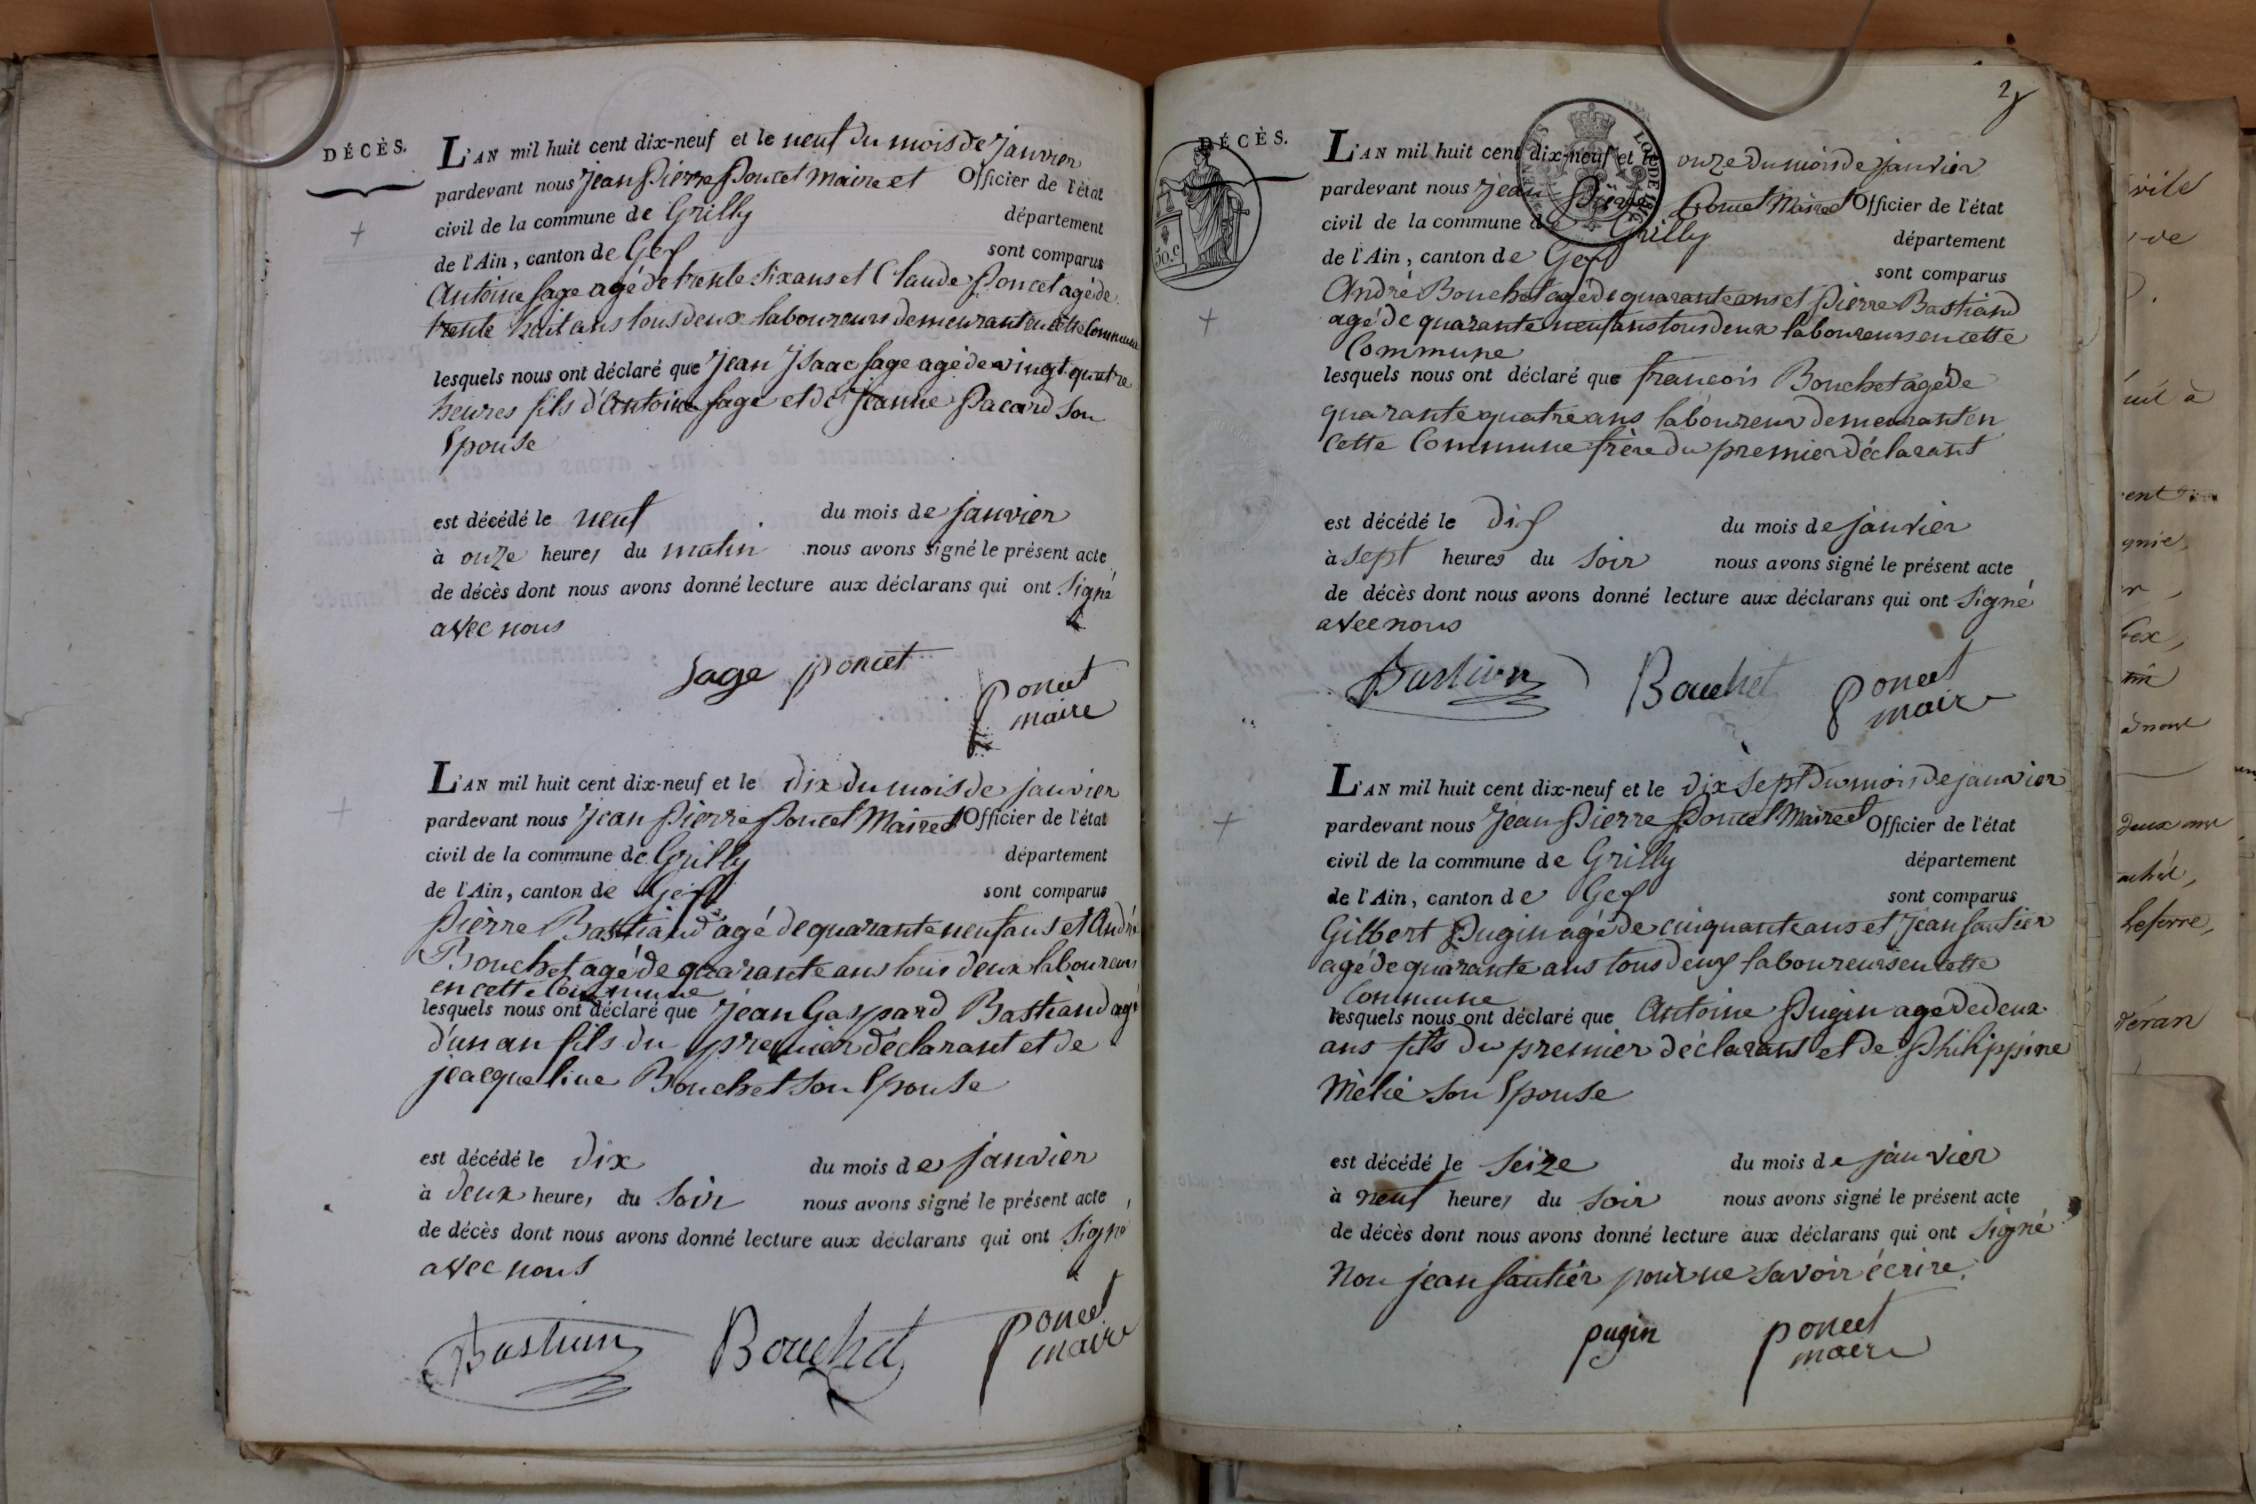 DÉCÈS.
L'AN mil huit cent dix-neuf et le neuf du mois de janvier
pardevant nous Jean Pierre Poncet Maire et Officier de l'état
civil de la commune de Grilly département
de l'Ain, canton de Gex sont comparus
Antoine Sage agé de trente six ans et Claude Poncet agé de
trente huit ans tous deux laboureurs demeurant en cette Commune
lesquels nous ont déclaré que Jean Isaac Sage agé de vingt quatre
heures fils d'Antoine Sage et de Jeanne Pacard son
Epouse
est décédé le neuf du mois de janvier
à onze heures du matin nous avons signé le présent acte
de décès dont nous avons donné lecture aux déclarans qui ont Signé
avec nous
Sage poncet
poncet
maire
L'AN mil huit cent dix-neuf et le dix du mois de janvier
pardevant nous Jean Pierre Poncet Maire et Officier de l'état
civil de la commune de Grilly département
de l'Ain, canton de Gex sont comparus
Pierre Bastiand agé de quarante neuf ans et André
Bouchet agé de quarante ans tous deux laboureurs
en cette Commune
lesquels nous ont déclaré que Jean Gaspard Bastiand agé
d'un an fils du premier déclarant et de
jeacqueline Bouchet son Epouse
est décédé le dix du mois de janvier
à deux heures du Soir nous avons signé le présent acte
de décès dont nous avons donné lecture aux déclarans qui ont Signé
avec nous
Bastian Bouchet poncet
maire
2
DÉCÈS.
50.c
L'AN mil huit cent dix-neuf et le onze du mois de janvier
pardevant nous Jean Pierre Poncet Maire et Officier de l'état
civil de la commune de Grilly département
de l'Ain, canton de Gex sont comparus
André Bouchet agé de quarante ans et Pierre Bastiand
agé de quarante neuf ans tous deux laboureurs en cette
Commune
lesquels nous ont déclaré que francois Bouchet agé de
quarante quatre ans laboureur demeurant en
cette Commune frère du premier déclarant
est décédé le dix du mois de janvier
à sept heures du Soir nous avons signé le présent acte
de décès dont nous avons donné lecture aux déclarans qui ont Signé
avec nous
Bastian Bouchet poncet
maire
L'AN mil huit cent dix-neuf et le dix Sept du mois de janvier
pardevant nous Jean Pierre Poncet Maire et Officier de l'état
civil de la commune de Grilly département
de l'Ain, canton de Gex sont comparus
Gilbert Pugin agé de cinquante ans et Jean Sautier
agé de quarante ans tous deux laboureurs en cette
Commune
lesquels nous ont déclaré que Antoine Pugin agé de deux
ans fils du premier déclarant et de Philippine
Mèlie son Epouse
est décédé le Seize du mois de janvier
à neuf heures du Soir nous avons signé le présent acte
de décès dont nous avons donné lecture aux déclarans qui ont Signé
Non jean Sautier pour ne savoir écrire.
pugin poncet
maire